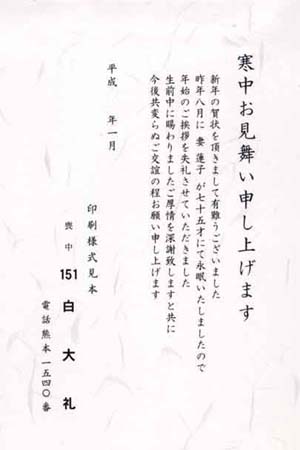 寒中お見舞い申し上げます
新年の賀状を頂きまして有難うございました
昨年八月に 妻 蓮子 が七十五才にて永眠いたしましたので
年始のご挨拶を失礼させていただきました
生前中に賜わりましたご厚情を深謝致しますと共に
今後共変らぬご交誼の程お願い申し上げます
平成 年一月
印刷様式見本
喪中
151 白大礼
電話熊本一五四〇番